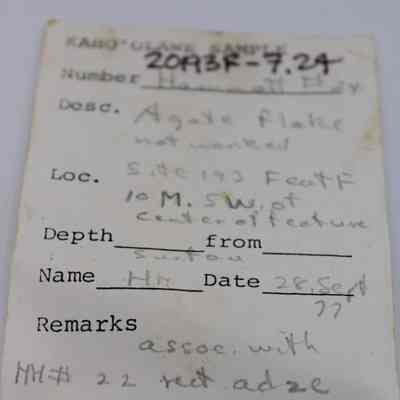 KAHO'OLAWE SAMPLE
20A93F-7.24
Number
Desc. Agate flake
not worked
Loc. Site 193 Feat F
10 M. SW. of
center of feature
Depth from
Name HH Date 28, Sept
77
Remarks
assoc. with
HH# 22 rect. adze